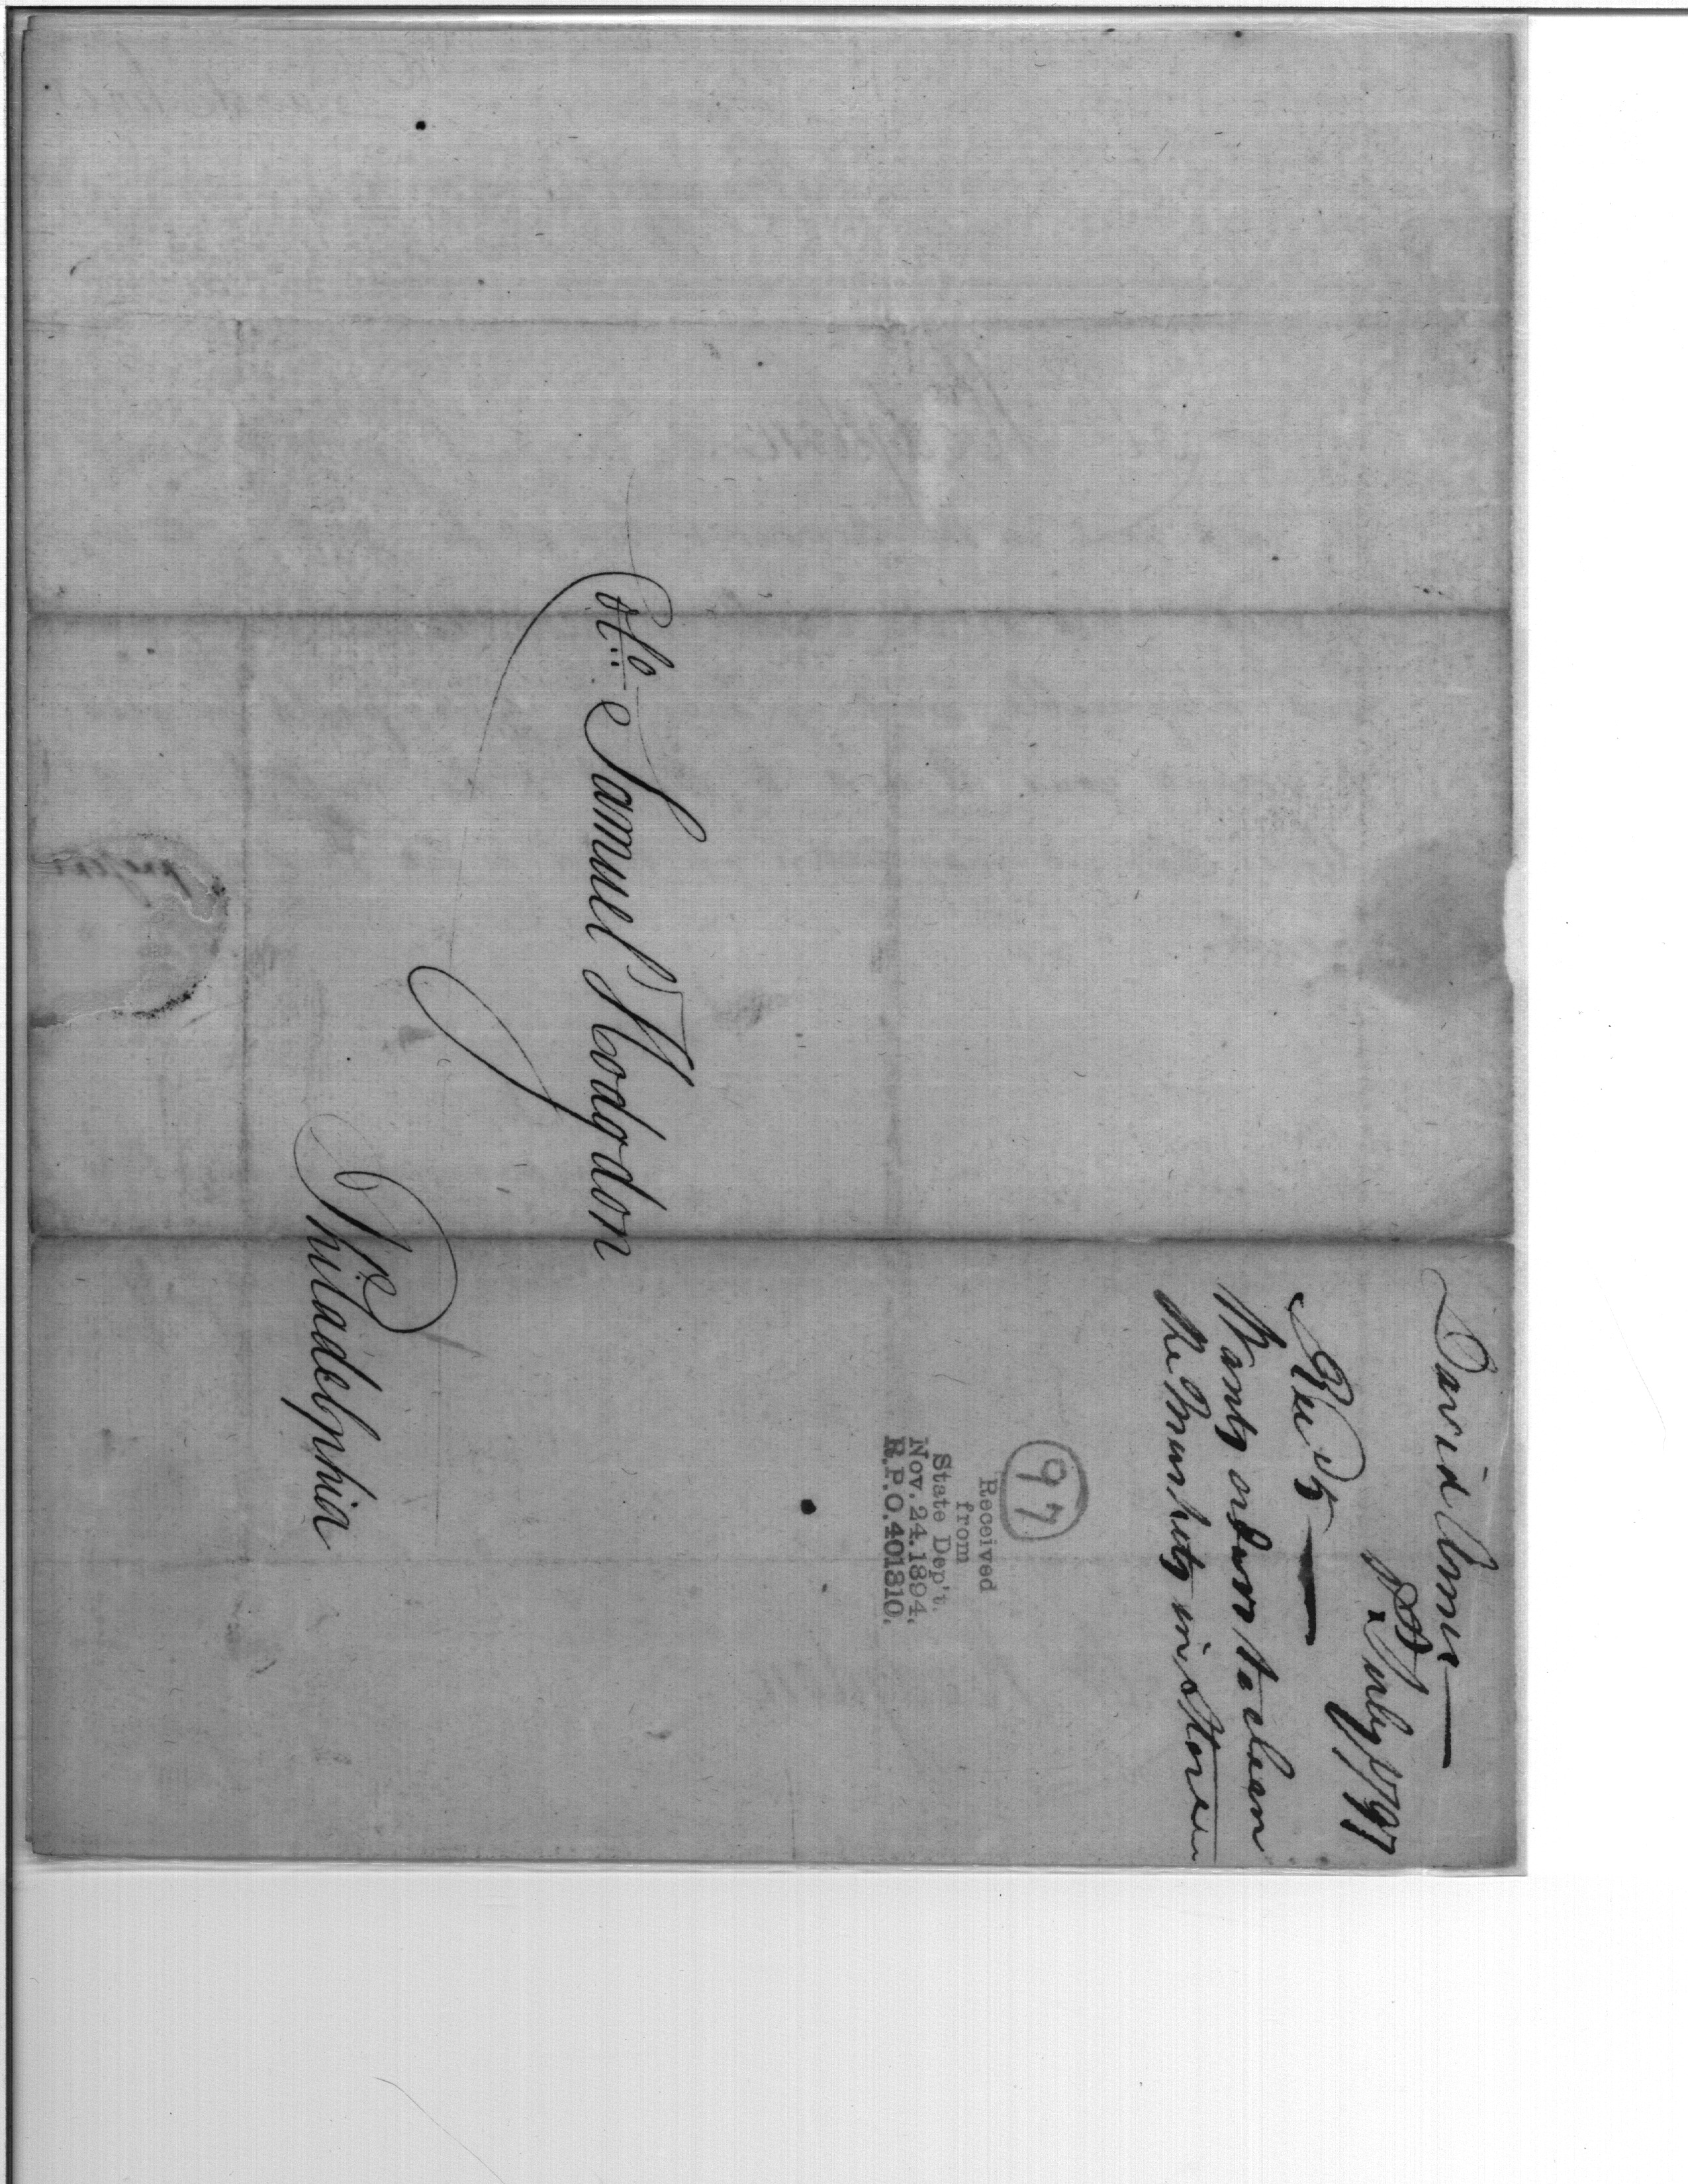 David Ames
July 1797
Rec'd 5
Wants orders to clean
the Muskets in Store
97
Received
from
State Dep't.
Nov. 24. 1894.
R.P.O. 401310.
Colo Samuel Hodgdon
Philadelphia